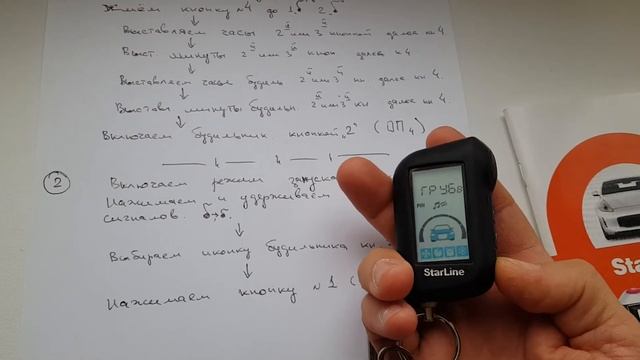 кнопку №4 до 1 2
Выставляем часы 2й или 3й кнопкой далее кн 4
Выст минуты 2й или 3й кноп далее к 4
Выставляем часы будиль 2й или 3й кн далее кн 4.
Выстав минуты будильн. 2й или 3й кн далее кн 4.
Включаем будильник кнопкой „2" (ОП4)
2
Включаем режим запуска
Нажимаем и удерживаем
сигналов.
Выбираем иконку будильника кн
Нажимаем кнопку №1 (
StarLine
Sta